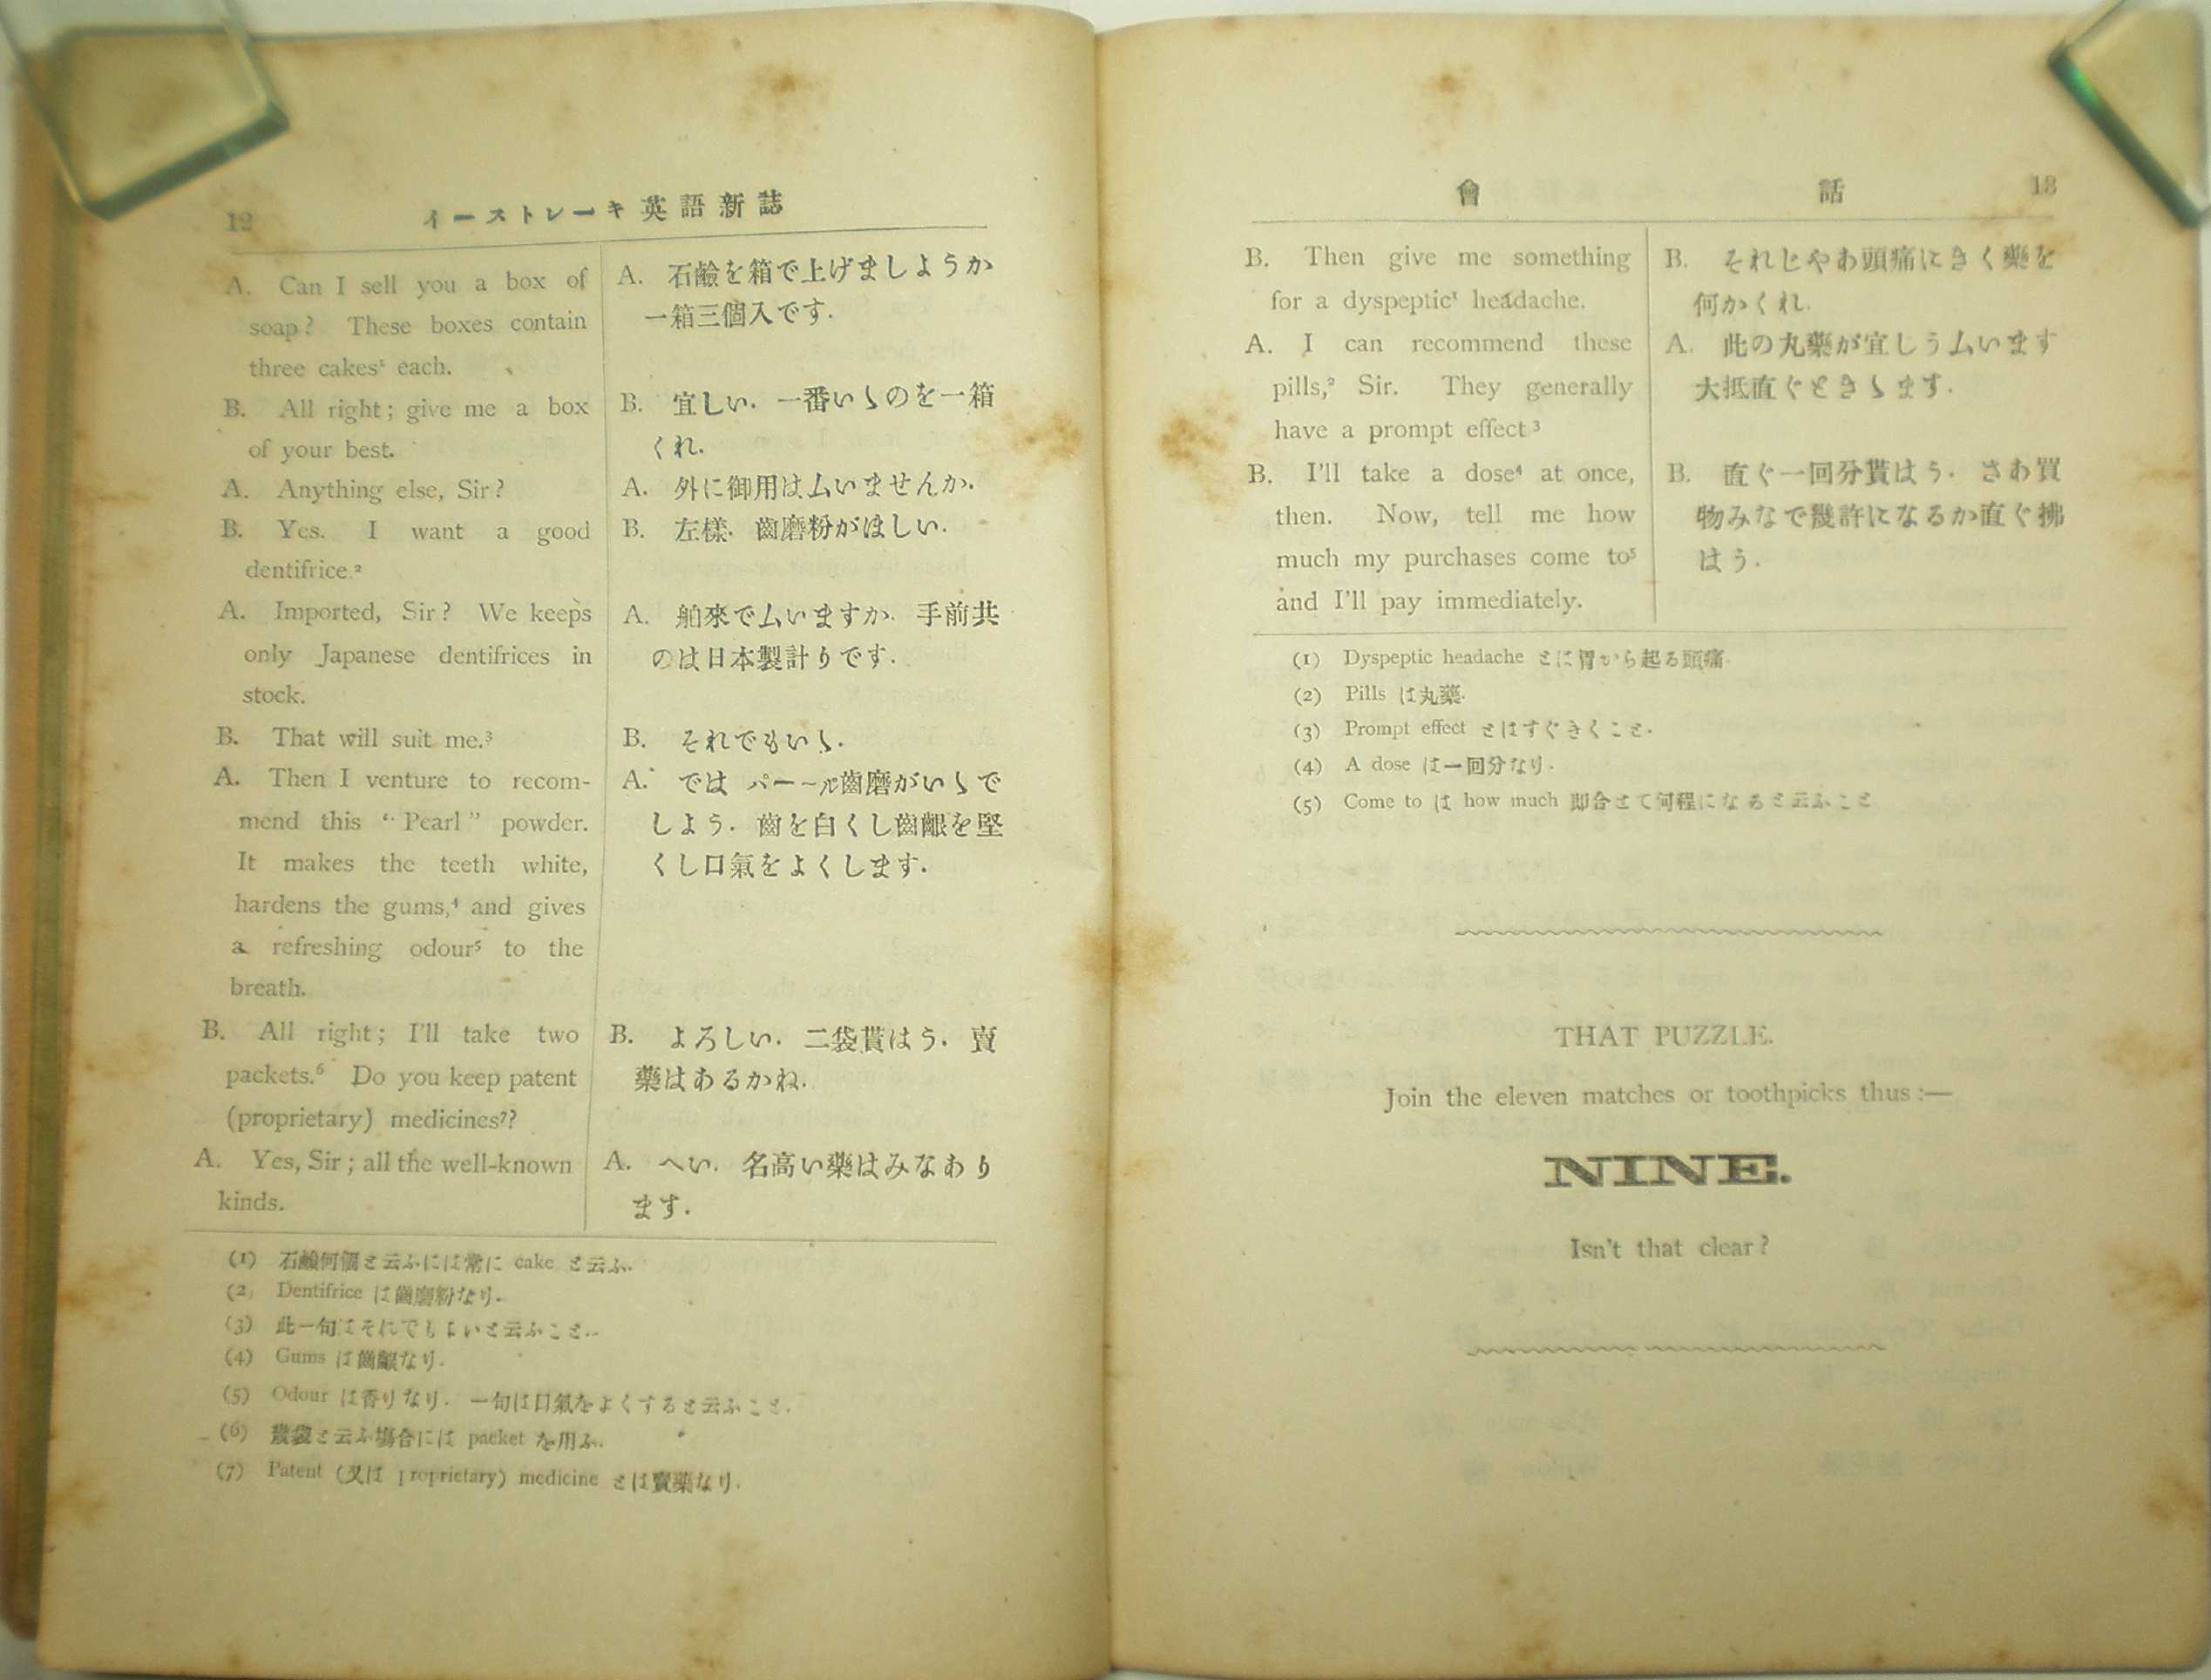 12
イーストレーキ英語新誌
A. Can I sell you a box of
soap? These boxes contain
three cakes¹ each.
B. All right; give me a box
of your best.
A. Anything else, Sir?
B. Yes. I want a good
dentifrice.²
A. Imported, Sir? We keeps
only Japanese dentifrices in
stock.
B. That will suit me.³
A. Then I venture to recom-
mend this “Pearl” powder.
It makes the teeth white,
hardens the gums,⁴ and gives
a refreshing odour⁵ to the
breath.
B. All right; I'll take two
packets.⁶ Do you keep patent
(proprietary) medicines⁷?
A. Yes, Sir; all the well-known
kinds.
A. 石鹼を箱で上げましようか
一箱三個入です.
B. 宜しい. 一番いゝのを一箱
くれ.
A. 外に御用はムいませんか.
B. 左樣. 齒磨粉がほしい.
A. 舶來でムいますか. 手前共
のは日本製計りです.
B. それでもいゝ.
A. では パール齒磨がいゝで
しよう. 齒を白くし齒齦を堅
くし口氣をよくします.
B. よろしい. 二袋貰はう. 賣
藥はあるかね.
A. へい. 名高い藥はみなあり
ます.
(1) 石鹼何個と云ふには常に cake と云ふ.
(2) Dentifrice は齒磨粉なり.
(3) 此一句はそれでもよいと云ふこと.
(4) Gums は齒齦なり.
(5) Odour は香りなり. 一句は口氣をよくすると云ふこと.
(6) 幾袋と云ふ塲合には packet を用ふ.
(7) Patent (又は proprietary) medicine とは賣藥なり.
會話
13
B. Then give me something
for a dyspeptic¹ headache.
A. I can recommend these
pills,² Sir. They generally
have a prompt effect³
B. I'll take a dose⁴ at once,
then. Now, tell me how
much my purchases come to⁵
and I'll pay immediately.
B. それじやあ頭痛にきく藥を
何かくれ.
A. 此の丸藥が宜しうムいます
大抵直ぐときゝます.
B. 直ぐ一回分貰はう. さあ買
物みなで幾許になるか直ぐ拂
はう.
(1) Dyspeptic headache とは胃から起る頭痛.
(2) Pills は丸藥.
(3) Prompt effect とはすぐきくこと.
(4) A dose は一回分なり.
(5) Come to は how much 即合せて何程になると云ふこと
THAT PUZZLE.
Join the eleven matches or toothpicks thus:—
NINE.
Isn't that clear?